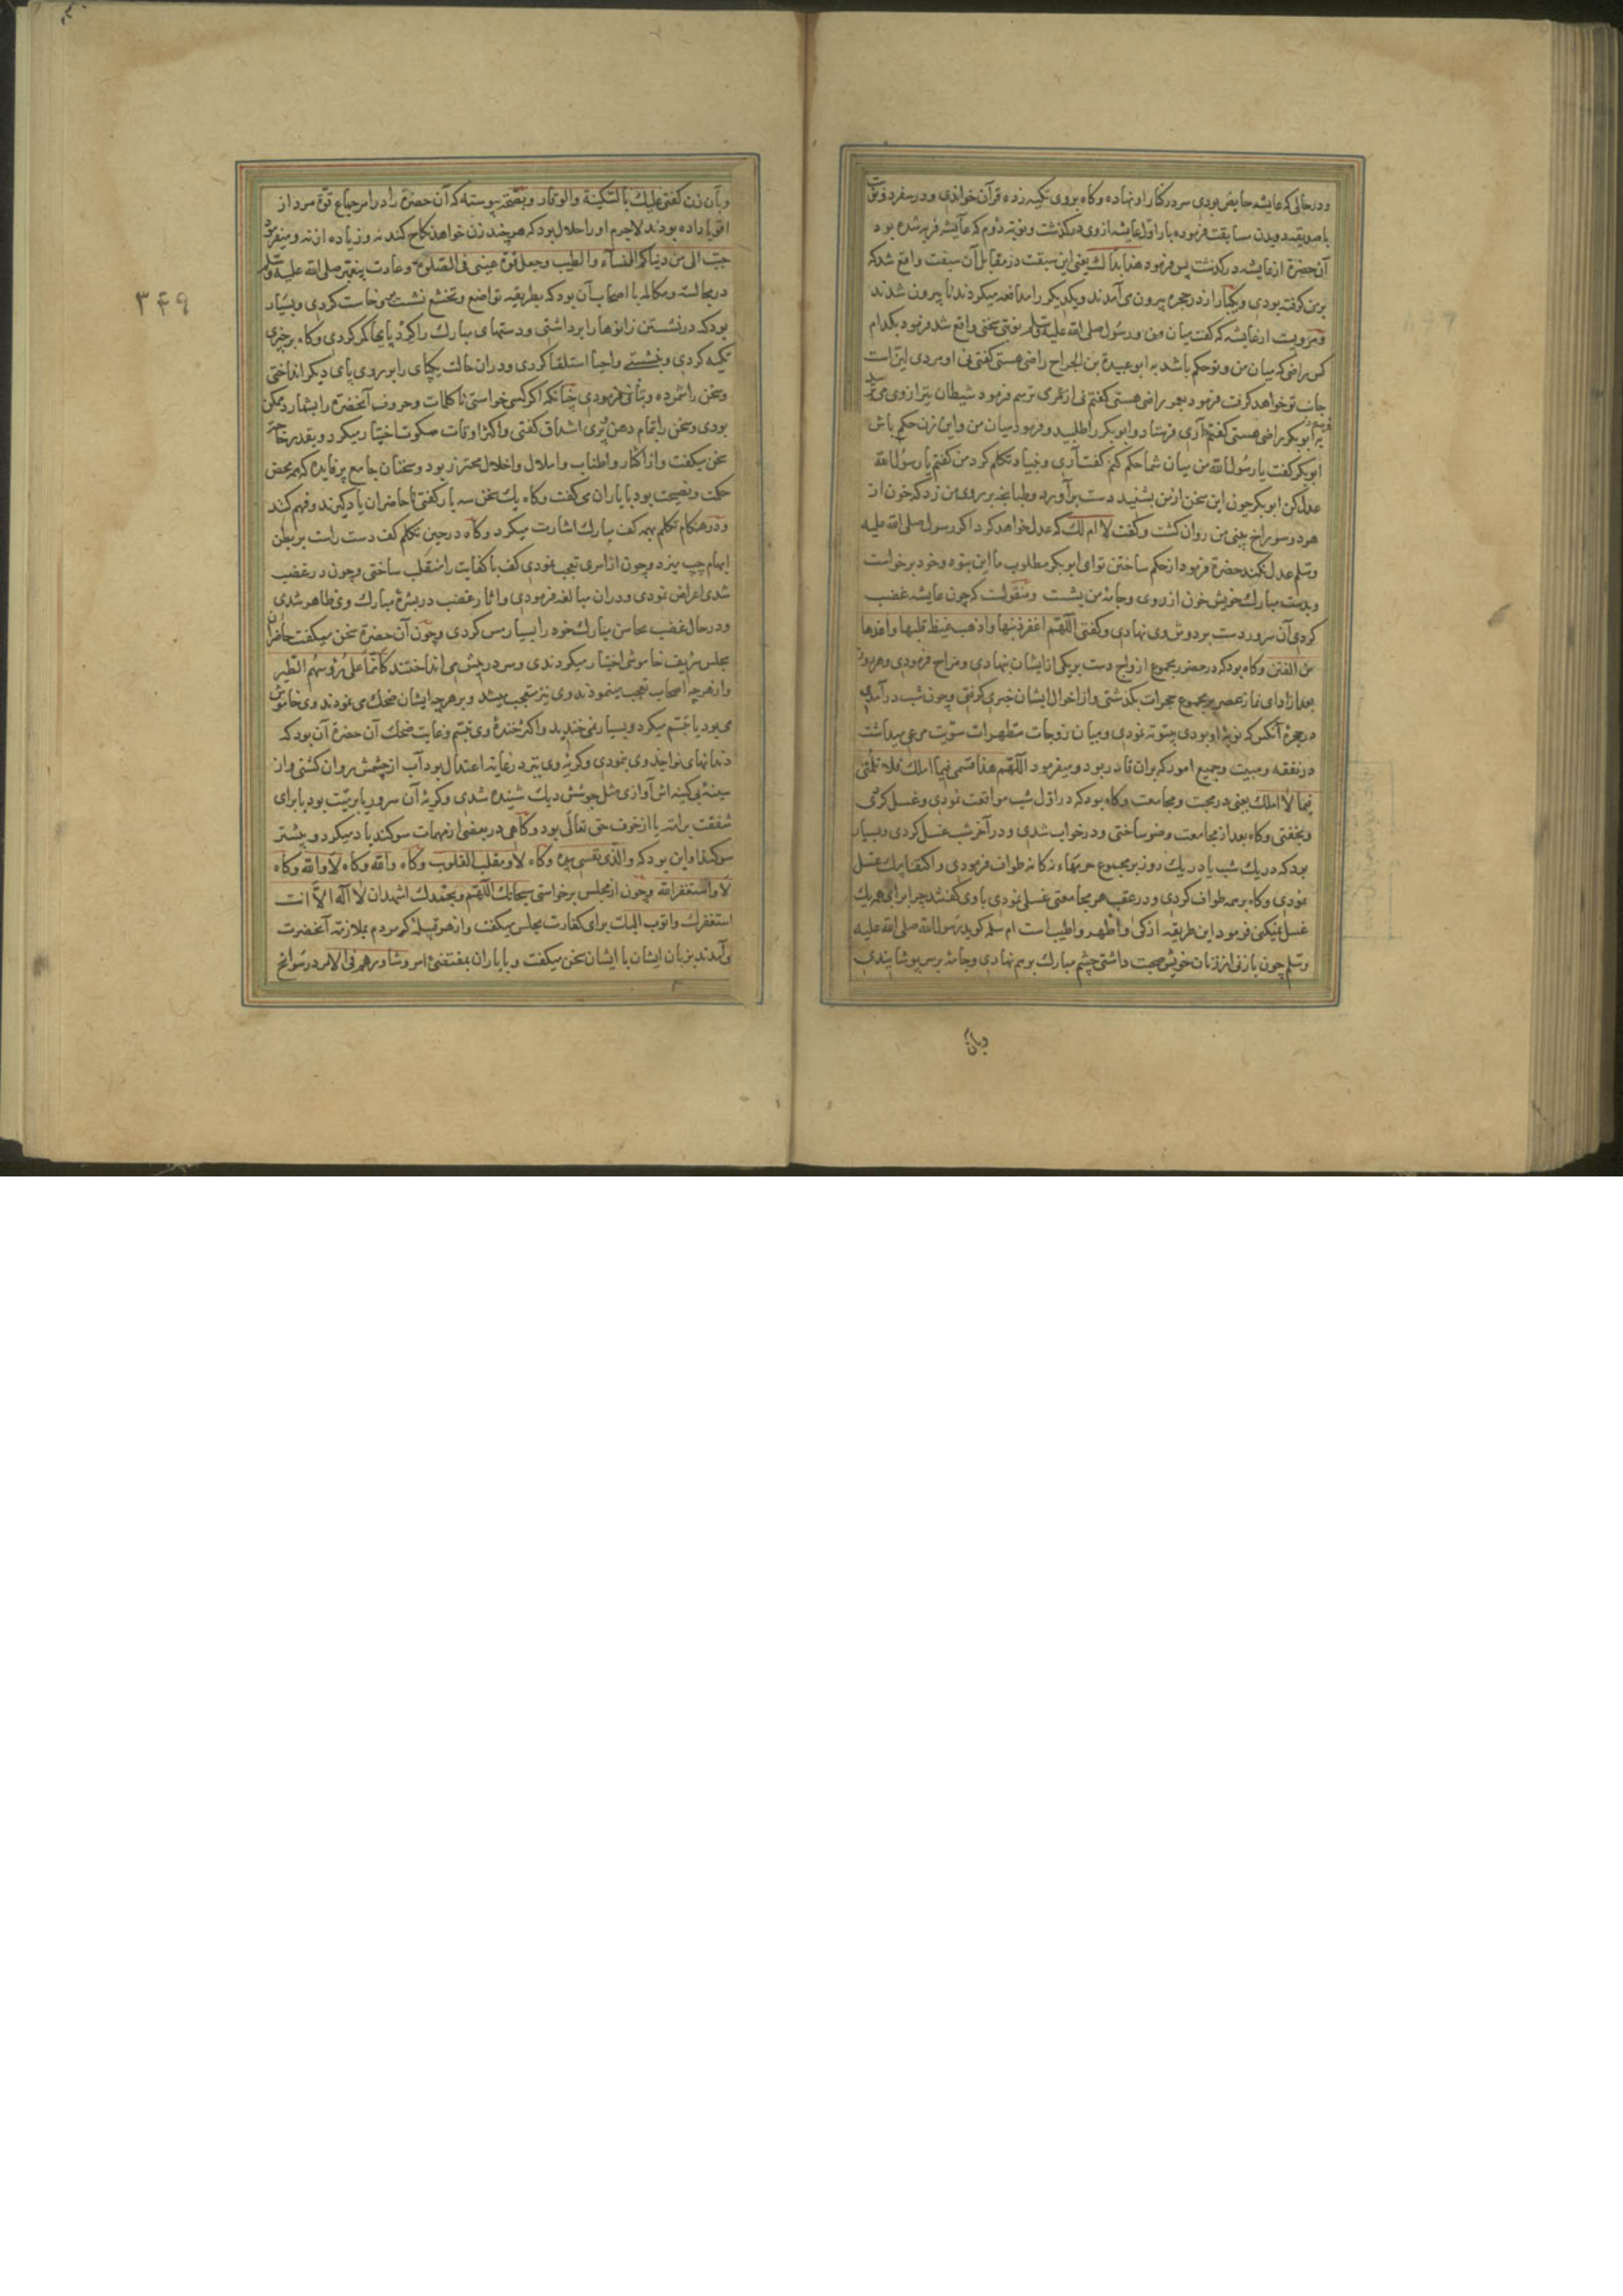 ودرحالی که عایشه حایض بودی سر در کنار او نهاده وکاه بروی تکیه زده قرآن خواندی ودر سفر دو نوبت
با صدیقه دویدن مسابقت فرموده بار اول عایشه از وی درگذشت ونوبه دوم که عایشه فربه شده بود
آن حضرة از عایشه درکذشت پس فرمود هذا بذاك یعنی این سبقت در مقابل آن سبقت واقع شد که
بر من کرفته بودی ویکبار از در حجره بیرون می آمدند ویکدیکر را مدافعه میکردند تا بیرون شدند
ومرویست از عایشه که کفت میان من ورسول صلی الله علیه وسلم نوبتی سخنی واقع شد فرمود بکدام
کس راضی که میان من وتو حکم باشد به ابو عبیدة بن الجراح راضی هستی کفتم نی او مردی لین است
جانب تو خواهد کرفت فرمود بعمر راضی هستی کفتم نی از عمر می ترسم فرمود شیطان نیز از وی می ترسد
فرمود به ابو بکر راضی هستی کفتم آری فرستاد وابوبکر را طلبید وفرمود میان من واین زن حکم باش
ابوبکر کفت یا رسول الله من میان شما حکم کنم کفت آری وبنیاد تکلم کرد من کفتم یا رسول الله
عدل کن ابوبکر چون این سخن از من بشنید دست برآورد وطبانچه بر روی من زد که خون از
هر دو سوراخ بینی من روان کشت وکفت لا ام لك که عدل خواهد کرد اکر رسول صلی الله علیه
وسلم عدل نکند حضرة فرمود از حکم ساختن تو ای ابوبکر مطلوب ما این نبوده وخود برخواست
وبدست مبارك خویش خون از روی وجامه من بشست ومنقولست که چون عایشه غضب
کردی آن سرور دست بر دوش وی نهادی وکفتی اللهم اغفر ذنبها واذهب غیظ قلبها واعذها
من الفتن وکاه بود که در حضور مجموع ازواج دست بر یکی از ایشان نهادی ومزاح فرمودی وهر روز
بعد از ادای نماز عصر بر مجموع حجرات بکذشتی واز احوال ایشان خبری کرفتی وچون شب درآمدی
در حجرۀ آنکس که نوبۀ او بودی بیتوته نمودی ومیان زوجات مطهرات سویت مرعی میداشت
در نفقه ومبیت وجمیع امور که بران قادر بود ومیفرمود اللهم هذا قسمی فیما املك فلا تلمنی
فیما لا املك یعنی در محبت ومجامعت وکاه بود که در اول شب مواقعت نمودی وغسل کردی
وبخفتی وکاه بعد از مجامعت وضو ساختی ودر خواب شدی ودر آخر شب غسل کردی وبسیار
بود که در یك شب یا در یك روز بر مجموع حرمهاء نه کانه طواف فرمودی واکتفا بیك غسل
نمودی وکاه بر همه طواف کردی ودر عقب هر مجامعتی غسلی نمودی با وی کفتند چرا برای همه یك
غسل نمیکنی فرمود این طریقه ازکی واطهر واطیب است ام سلمه کوید رسول الله صلی الله علیه
وسلم چون با زنی از زنان خویش صحبت داشتی چشم مبارك برهم نهادی وجامه بر سر پوشانیدی
وبآن
وبآن زن کفتی علیك بالسکینة والوقار وبصحت پیوسته که آن حضرة را در امر جماع قوة سی مرد از
اقویا داده بودند لاجرم او را حلال بود که هر چند زن خواهد نکاح کند نه وزیاده از نه ومیفرمود
حبب الی من دنیاکم النساء والطیب وجعل قرة عینی فی الصلوة وعادت پیغمبر صلی الله علیه وسلم
در مجالسه ومکالمه با اصحاب آن بود که بطریقه تواضع وتخشع نشست وخاست کردی وبسیار
بود که در نشستن زانوها را برداشتی ودستهای مبارك را کرد پایها کمر کردی وکاه بر چیزی
تکیه کردی ونشستی واحیانا استلقا کردی ودران حالت یکپای را بر روی پای دیکر انداختی
وسخن را شمرده وبتأنی فرمودی چنانکه اکر کسی خواستی تا کلمات وحروف آنحضرة را بشمارد ممکن
بودی وسخن را بتمام دهن پری اشداق کفتی واکثر اوقات سکوت اختیار میکرد وبقدر حاجت
سخن میکفت واز اکثار واطناب واملال واخلال محترز بود وسخنان جامع پر فایده که همه محض
حکمت ونصیحت بود با یاران می کفت وکاه یك سخن سه بار کفتی تا حاضران یاد کیرند وفهم کنند
ودر هنکام تکلم بهمه کف مبارك اشارت میکرد وکاه در حین تکلم کف دست راست بر بطن
ابهام چپ میزد وچون از امری تعجب نمودی کف با کفایت را منقلب ساختی وچون در غضب
شدی اعراض نمودی ودران مبالغه فرمودی واثار غضب در بشرۀ مبارك وی ظاهر شدی
ودر حال غضب محاسن مبارك خود را بسیار مس کردی وچون آن حضرة سخن میکفت حاضران
مجلس شریف خاموشی اختیار میکردندی وسر در پیش می انداختند کانما علی رؤسهم الطیر
واز هر چه اصحاب تعجب مینمودند وی نیز متعجب میشد وبر هر چه ایشان ضحك می نمودند وی خاموش
می بود یا تبسم میکرد وبسیار نمی خندید واکثر خندۀ وی تبسم وغایت ضحك آن حضرة آن بود که
دندانهای نواجذ وی بنمودی وکریۀ وی نیز در غایة اعتدال بود آب از چشمش روان کشتی واز
سینۀ بی کینه اش آوازی مثل جوشش دیك شنیده شدی وکریۀ آن سرور یا بر میت بود یا برای
شفقت بر امت یا از خوف حق تعالی بود وکاهی در بعضی از مهمات سوکند یاد میکرد وبیشتر
سوکند او این بود که والذی نفسی بیده وکاه لا ومقلب القلوب وکاه والله وکاه لا والله وکاه
لا واستغفر الله وچون از مجلس برخواستی سبحانك اللهم وبحمدك اشهد ان لا اله الا انت
استغفرك واتوب الیك برای کفارت مجلس میکفت واز هر قبیله که مردم بملازمة آنحضرت
می آمدند بزبان ایشان با ایشان سخن میکفت وبا یاران بمقتضی امر وشاورهم فی الامر در سوانح
۳۴۹